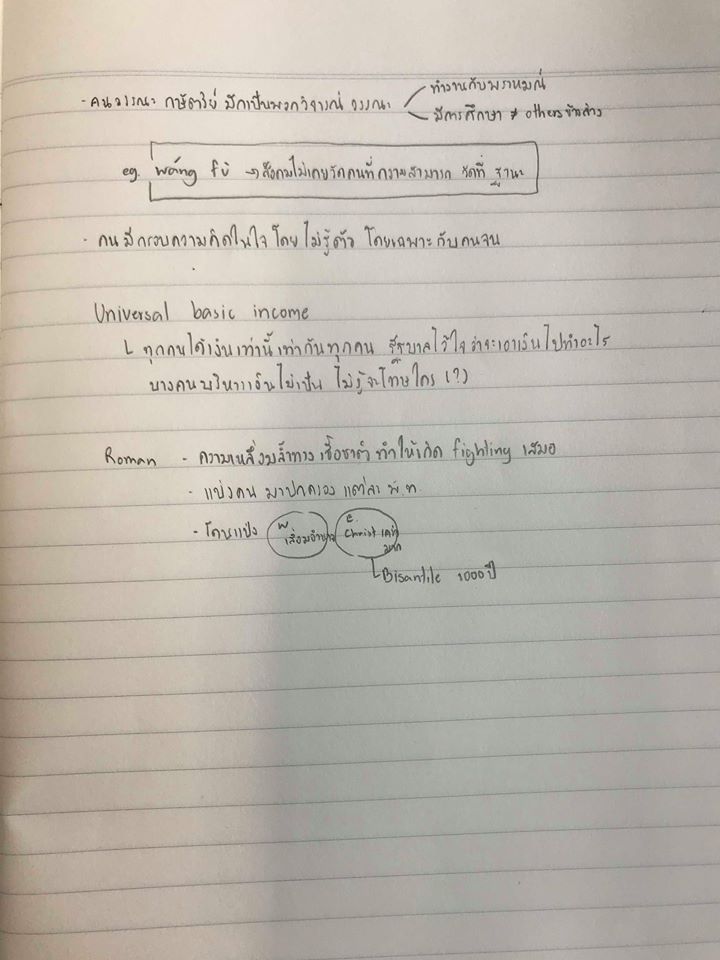 - คนวรรณะ กษัตริย์ มักเป็นพวกวิจารณ์ วรรณะ
ทำงานกับพราหมณ์
มีการศึกษา ≠ others ข้างล่าง
eg. wáng fú → สังคมไม่เคยวัดคนที่ความสามารถ วัดที่ ฐานะ
- คนมีกรอบความคิดในใจ โดยไม่รู้ตัว โดยเฉพาะกับคนจน
Universal basic income
ทุกคนได้เงินเท่านี้เท่ากันทุกคน รัฐบาลไว้ใจว่าจะเอาเงินไปทำอะไร
บางคนบริหารเงินไม่เป็น ไม่รู้จะโทษใคร (?)
Roman - ความเหลื่อมล้ำทางเชื้อชาติ ทำให้เกิด fighting เสมอ
- แบ่งคน มาปกครอง แต่ละ พ.ท.
- โดนแบ่ง W เสื่อมอำนาจ E Christ เคร่งมาก
Bisantile 1000 ปี